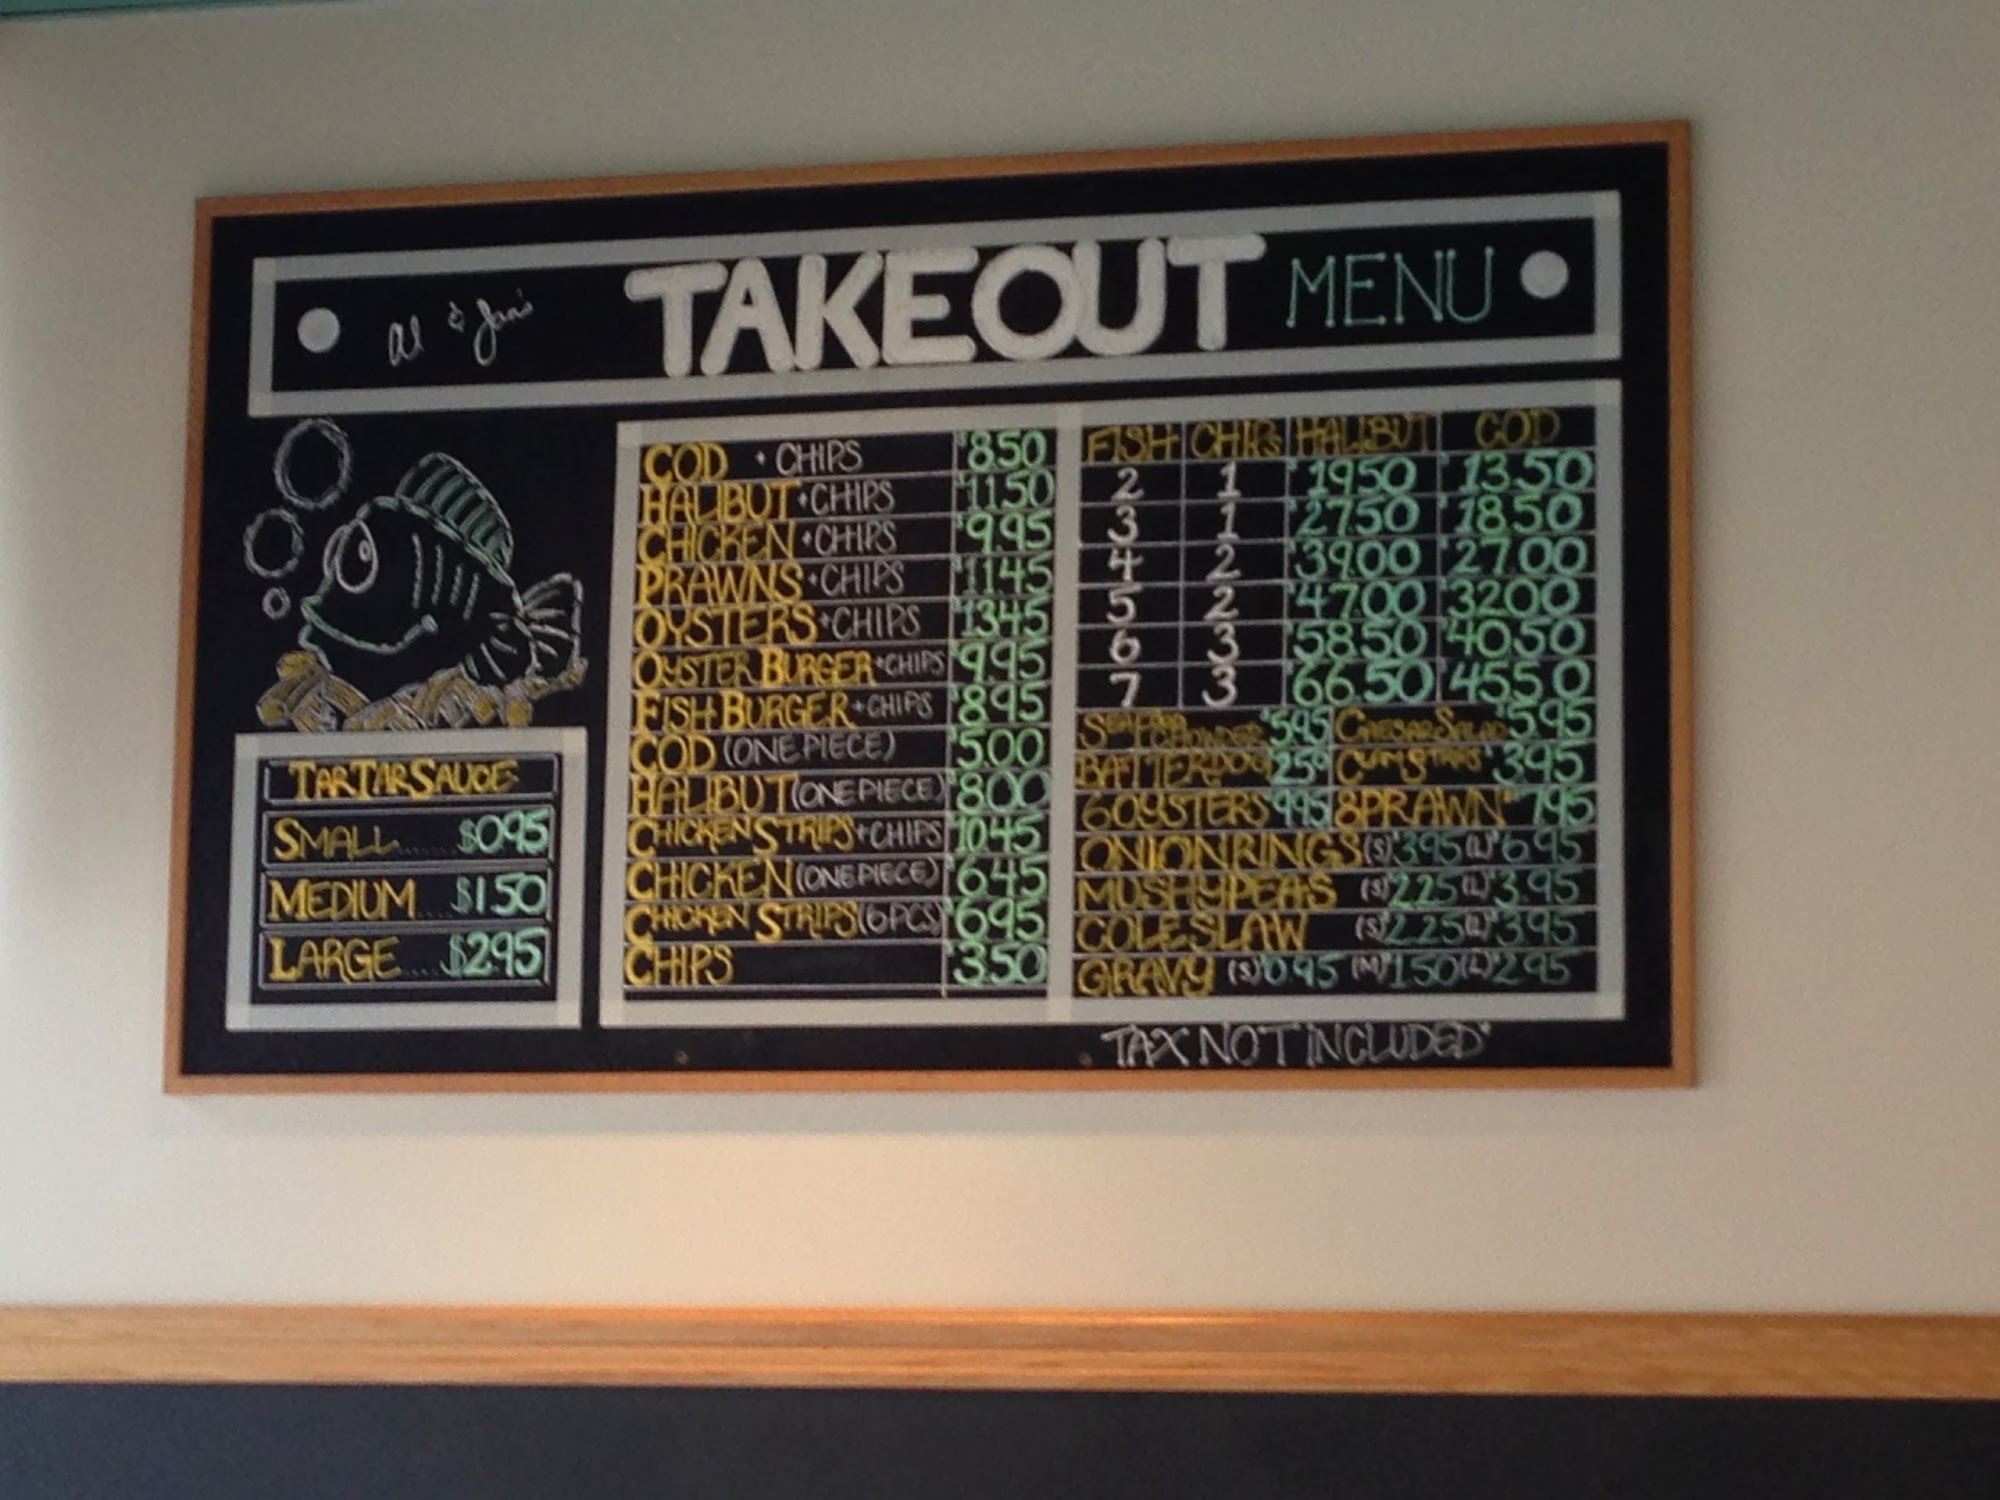 Al & Jan's TAKEOUT MENU
COD + CHIPS $8.50
HALIBUT + CHIPS $11.50
CHICKEN + CHIPS $9.95
PRAWNS + CHIPS $11.45
OYSTERS + CHIPS $13.45
OYSTER BURGER + CHIPS $9.95
FISH BURGER + CHIPS $8.95
COD (ONE PIECE) $5.00
HALIBUT (ONE PIECE) $8.00
CHICKEN STRIPS + CHIPS $10.45
CHICKEN (ONE PIECE) $6.45
CHICKEN STRIPS (6 PCS) $6.95
CHIPS $3.50
FISH CHIPS HALIBUT COD
2 1 $19.50 $13.50
3 1 $27.50 $18.50
4 2 $39.00 $27.00
5 2 $47.00 $32.00
6 3 $58.50 $40.50
7 3 $66.50 $45.50
SEAFOOD CHOWDER $5.95 CAESAR SALAD $5.95
BATTERDOG 2.50 CLAM STRIPS $3.95
6 OYSTERS 9.95 8 PRAWN $7.95
ONION RINGS (S) $3.95 (L) $6.95
MUSHY PEAS (S) $2.25 (L) $3.95
COLESLAW (S) $2.25 (L) $3.95
GRAVY (S) $0.95 (M) $1.50 (L) $2.95
TARTAR SAUCE
SMALL...... $0.95
MEDIUM... $1.50
LARGE... $2.95
TAX NOT INCLUDED*